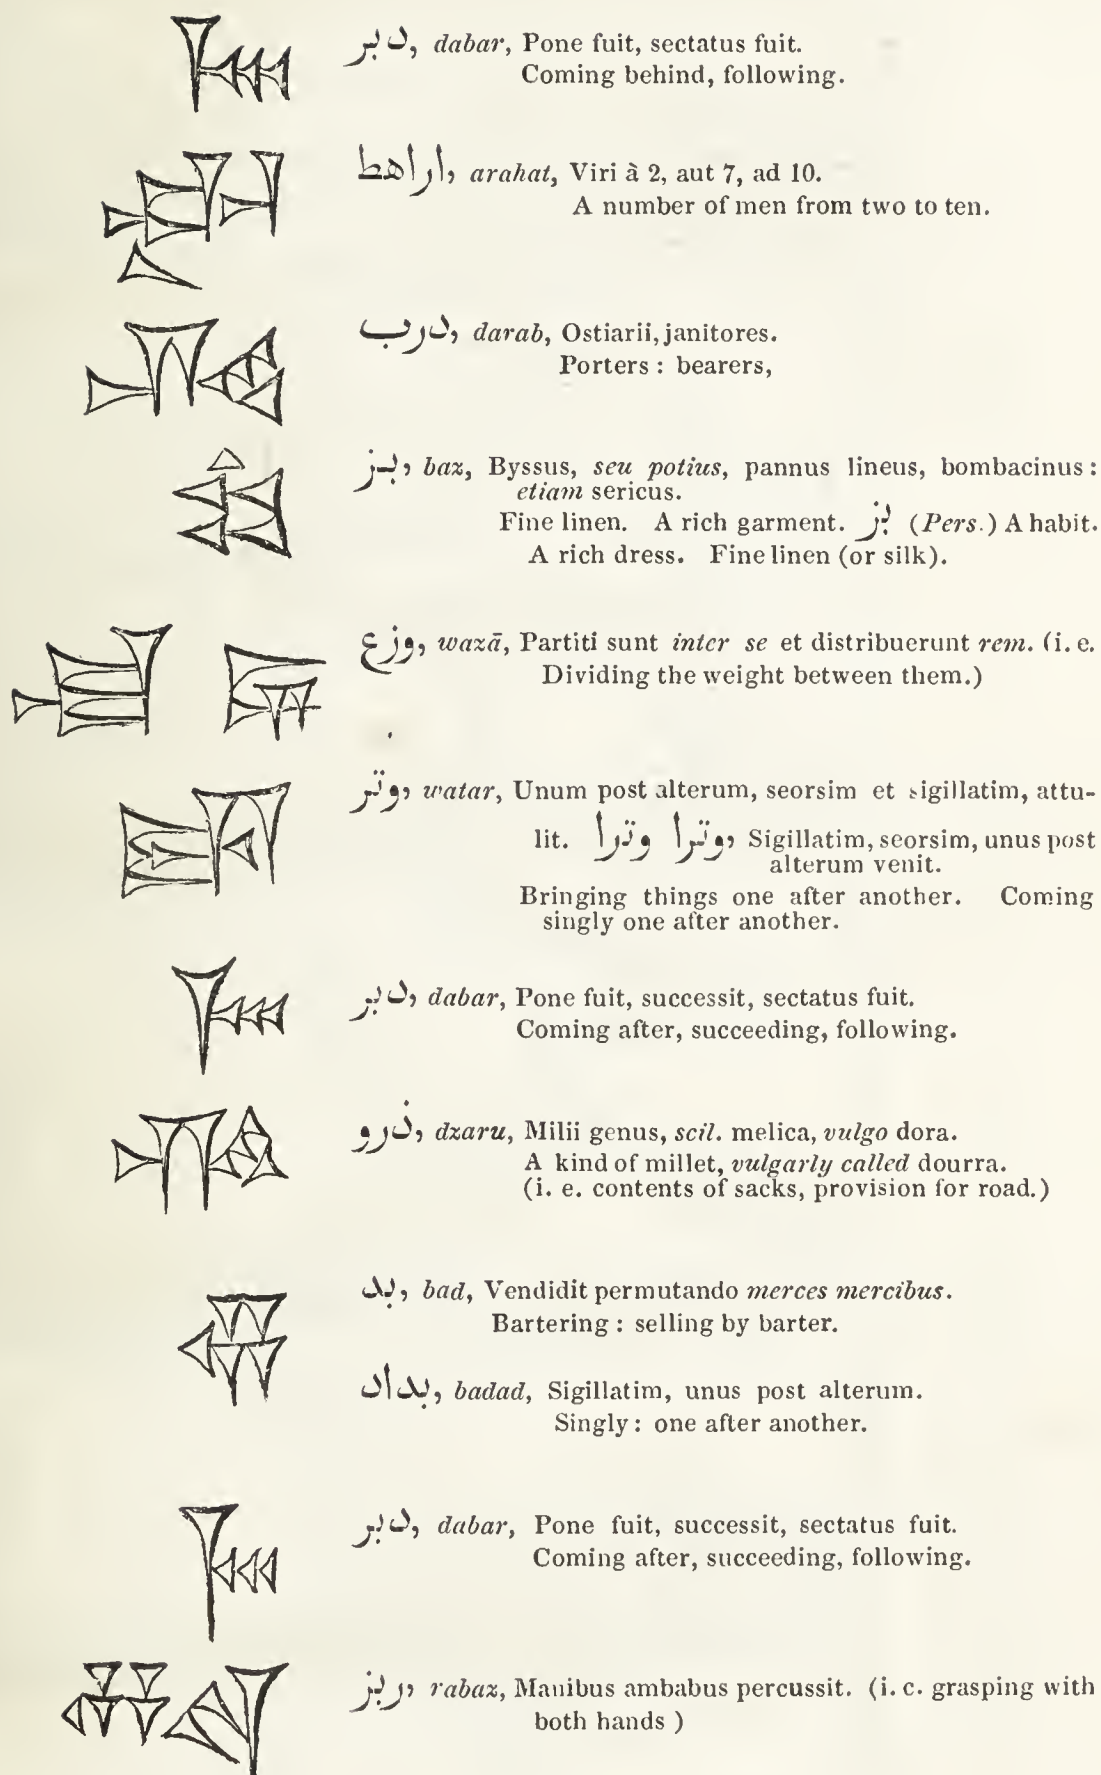 دبر, dabar, Pone fuit, sectatus fuit.
Coming behind, following.
اراهط, arahat, Viri à 2, aut 7, ad 10.
A number of men from two to ten.
درب, darab, Ostiarii, janitores.
Porters : bearers,
بز, baz, Byssus, seu potius, pannus lineus, bombacinus :
etiam sericus.
Fine linen. A rich garment. بز (Pers.) A habit.
A rich dress. Fine linen (or silk).
وزع, wazā, Partiti sunt inter se et distribuerunt rem. (i. e.
Dividing the weight between them.)
وتر, watar, Unum post alterum, seorsim et sigillatim, attu-
lit. وترا وترا, Sigillatim, seorsim, unus post
alterum venit.
Bringing things one after another. Coming
singly one after another.
دبر, dabar, Pone fuit, successit, sectatus fuit.
Coming after, succeeding, following.
ذرو, dzaru, Milii genus, scil. melica, vulgo dora.
A kind of millet, vulgarly called dourra.
(i. e. contents of sacks, provision for road.)
بد, bad, Vendidit permutando merces mercibus.
Bartering : selling by barter.
بداد, badad, Sigillatim, unus post alterum.
Singly : one after another.
دبر, dabar, Pone fuit, successit, sectatus fuit.
Coming after, succeeding, following.
ربز, rabaz, Manibus ambabus percussit. (i. e. grasping with
both hands )